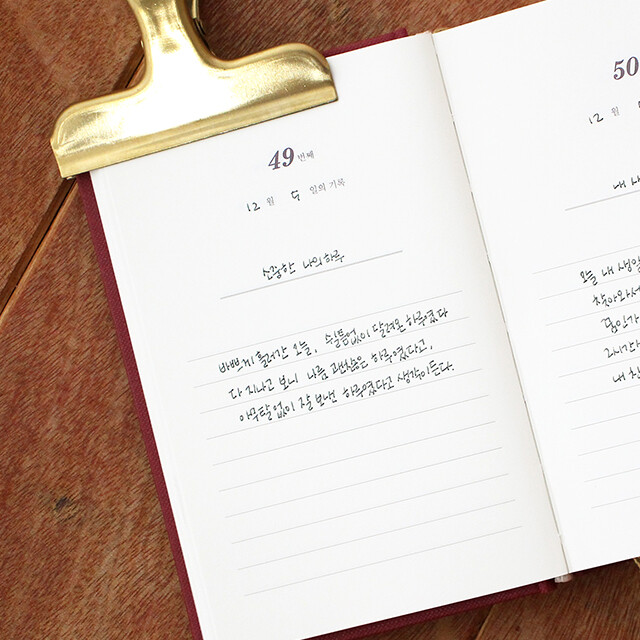 49 번째
12 월 9 일의 기록
소중한 나의 하루
바쁘게 흘러간 오늘, 쉴틈없이 달려온 하루였다
다 지나고 보니 나름 괜찮은 하루였다고,
아무탈 없이 잘 보낸 하루였다고 생각이든다.
50
12 월
내
오늘 내 생일
찾아와서
내